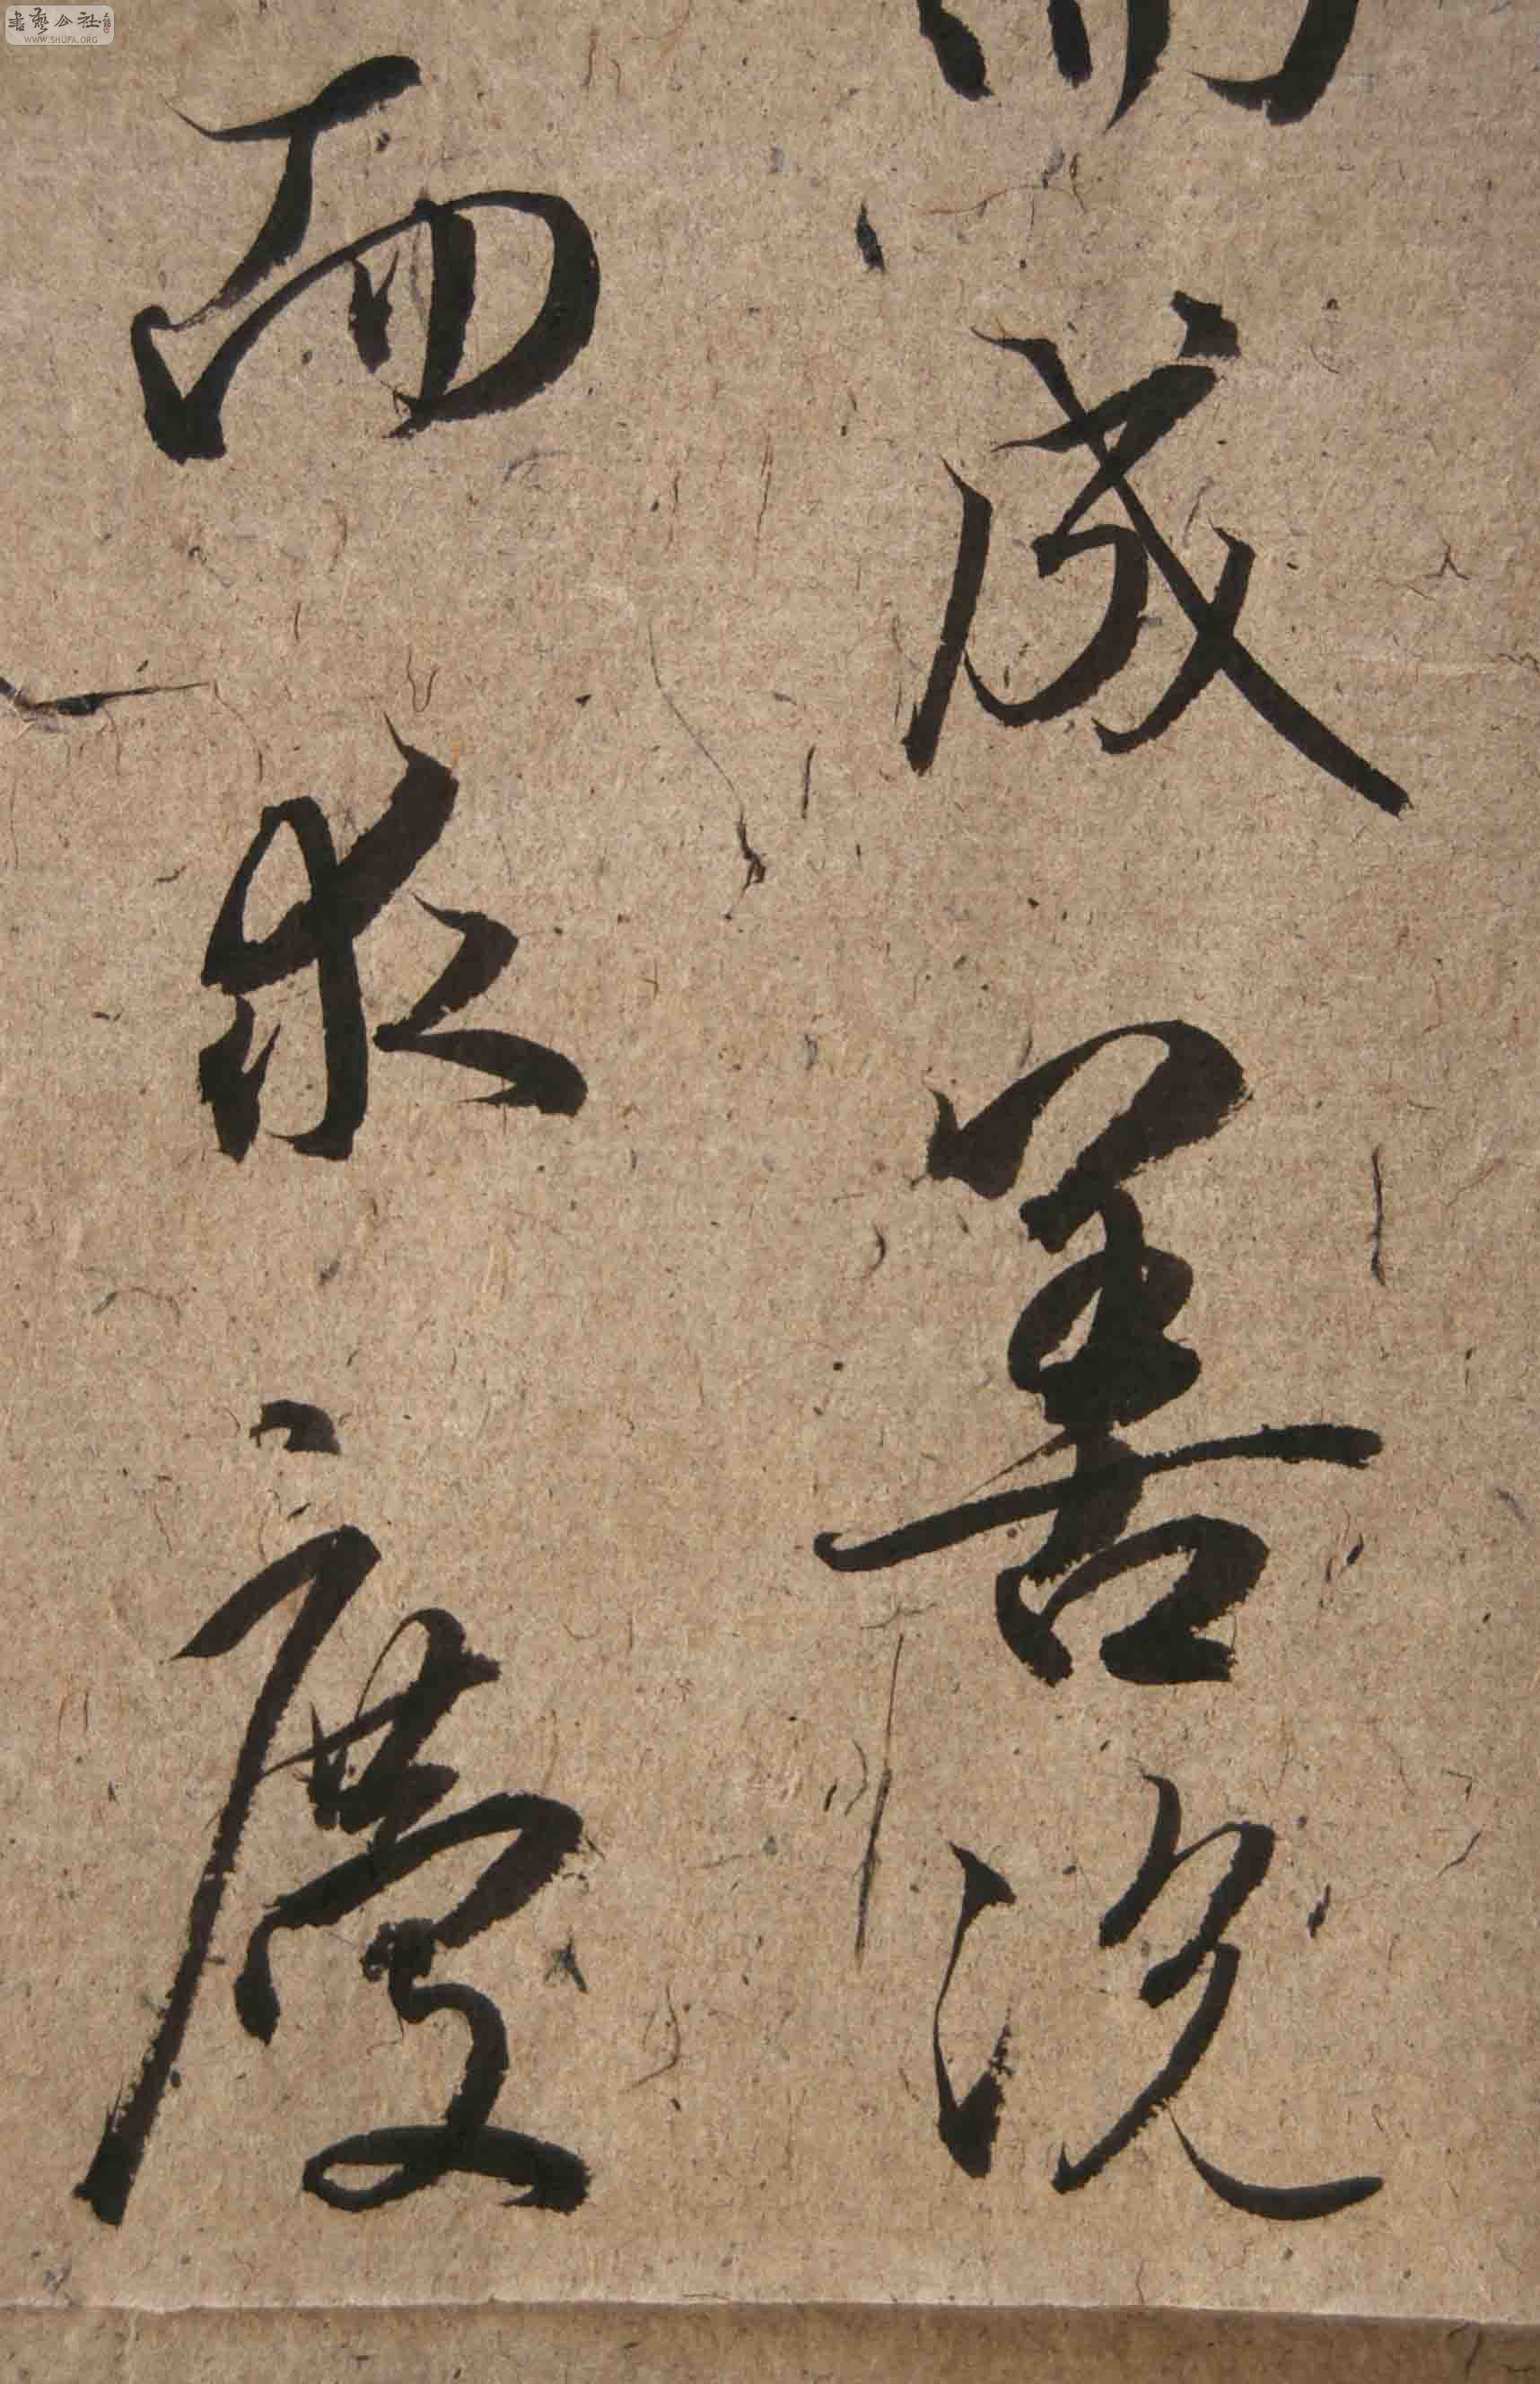 書藝公社
WWW.SHUFA.ORG
成善況
而求慶